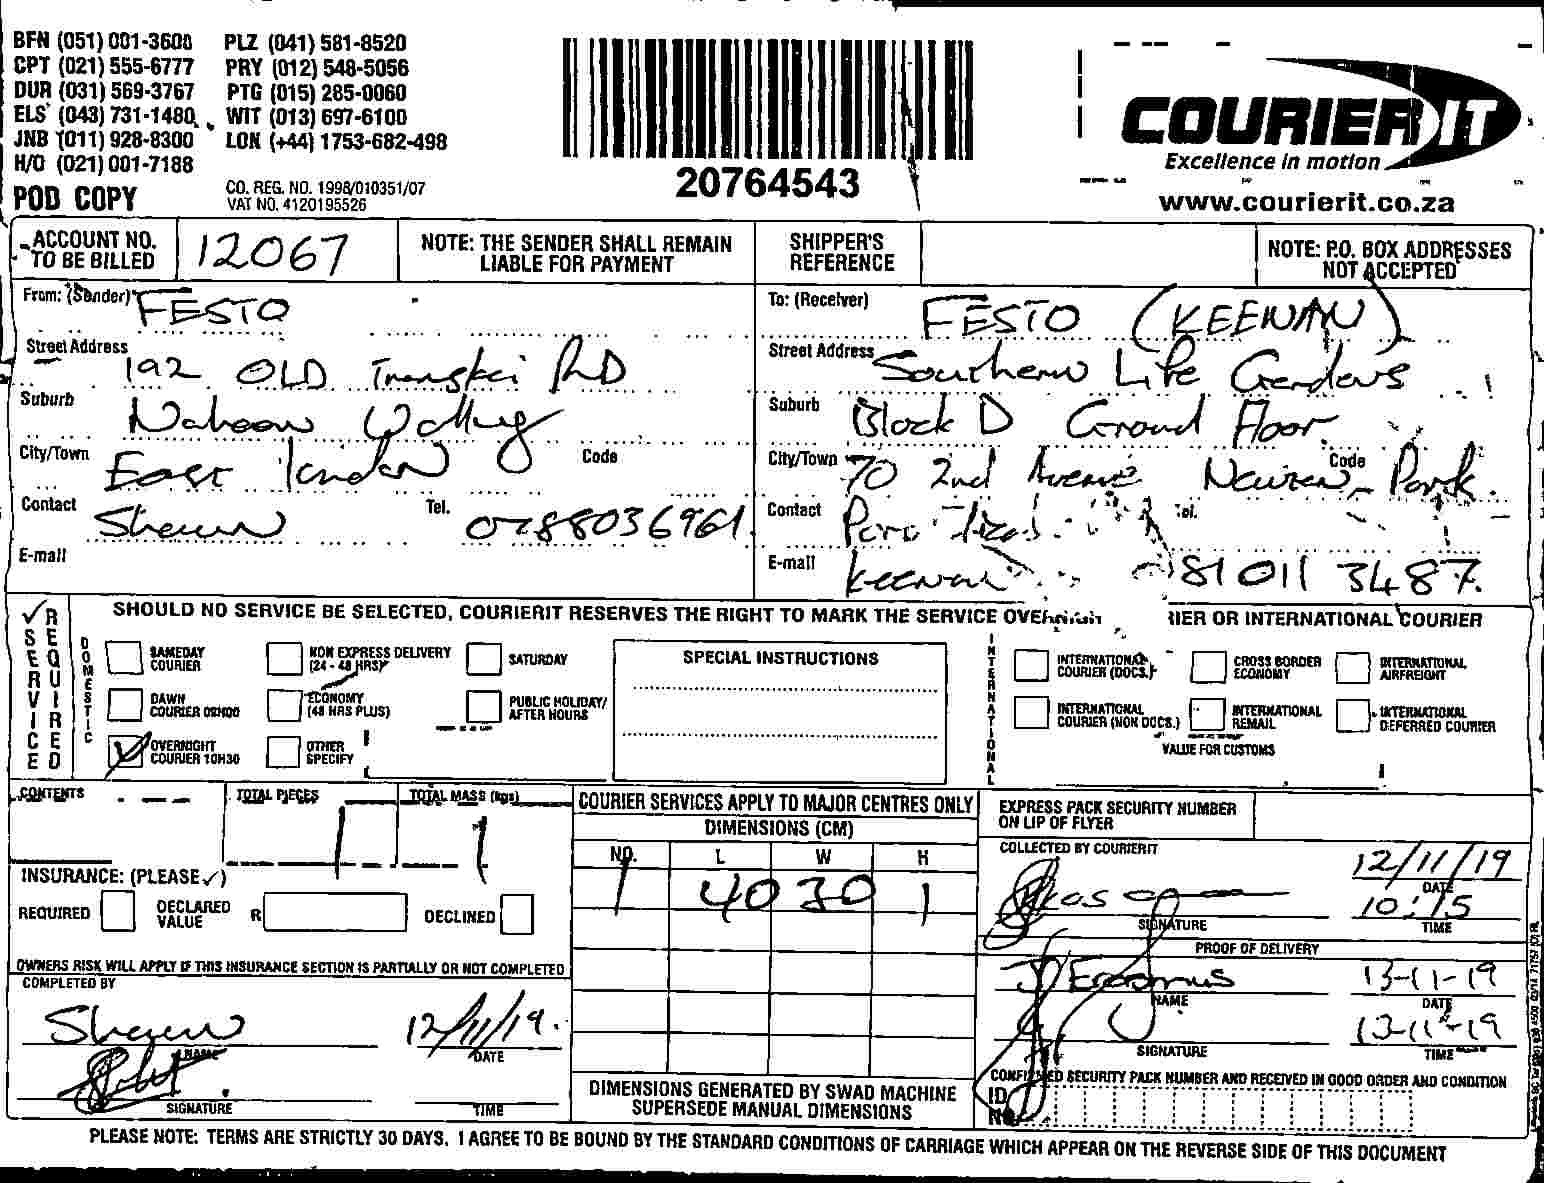 BFN (051) 001-3600 PLZ (041) 581-8520
CPT (021) 555-6777 PRY (012) 548-5056
DUR (031) 569-3767 PTG (015) 285-0060
ELS (043) 731-1480 WIT (013) 697-6100
JNB (011) 928-8300 LON (+44) 1753-682-498
H/O (021) 001-7188
POD COPY
CO. REG. NO. 1998/010351/07
VAT NO. 4120195526
20764543
COURIER IT
Excellence in motion
www.courierit.co.za
ACCOUNT NO. TO BE BILLED 12067
NOTE: THE SENDER SHALL REMAIN LIABLE FOR PAYMENT
SHIPPER'S REFERENCE
NOTE: P.O. BOX ADDRESSES NOT ACCEPTED
From: (Sender) FESTO
Street Address 192 OLD Transkei RD
Suburb Nahoon Valley
City/Town East London Code
Contact Shaun Tel.
E-mail
To: (Receiver) FESTO (KEENAN)
Street Address Southern Life Gardens
Suburb Block D Ground Floor
City/Town 70 2nd Avenue Newton Park Code
Contact Tel.
E-mail Keenan 081 011 3487
SERVICE REQUIRED
SHOULD NO SERVICE BE SELECTED, COURIERIT RESERVES THE RIGHT TO MARK THE SERVICE
OR INTERNATIONAL COURIER
DOMESTIC
SAMEDAY COURIER
NON EXPRESS DELIVERY (24 - 48 HRS)
SATURDAY
DAWN COURIER 09H00
ECONOMY (48 HRS PLUS)
PUBLIC HOLIDAY/ AFTER HOURS
OVERNIGHT COURIER 10H30
OTHER SPECIFY
SPECIAL INSTRUCTIONS
INTERNATIONAL
INTERNATIONAL COURIER (DOCS.)
CROSS BORDER ECONOMY
INTERNATIONAL AIRFREIGHT
INTERNATIONAL COURIER (NON DOCS.)
INTERNATIONAL REMAIL
INTERNATIONAL DEFERRED COURIER
VALUE FOR CUSTOMS
CONTENTS
TOTAL PIECES 1
TOTAL MASS (kgs) 1
INSURANCE: (PLEASE ✓)
REQUIRED
DECLARED VALUE R
DECLINED
OWNERS RISK WILL APPLY IF THIS INSURANCE SECTION IS PARTIALLY OR NOT COMPLETED
COMPLETED BY
Shaun 12/11/19
NAME DATE
SIGNATURE TIME
COURIER SERVICES APPLY TO MAJOR CENTRES ONLY
DIMENSIONS (CM)
NO. L W H
1 40 30 1
DIMENSIONS GENERATED BY SWAD MACHINE
SUPERSEDE MANUAL DIMENSIONS
EXPRESS PACK SECURITY NUMBER
ON LIP OF FLYER
COLLECTED BY COURIERIT
12/11/19
DATE
10:15
SIGNATURE TIME
PROOF OF DELIVERY
J Erasmus 13-11-19
NAME DATE
13-11-19
SIGNATURE TIME
CONFIRMED SECURITY PACK NUMBER AND RECEIVED IN GOOD ORDER AND CONDITION
ID NO.
PLEASE NOTE: TERMS ARE STRICTLY 30 DAYS. I AGREE TO BE BOUND BY THE STANDARD CONDITIONS OF CARRIAGE WHICH APPEAR ON THE REVERSE SIDE OF THIS DOCUMENT